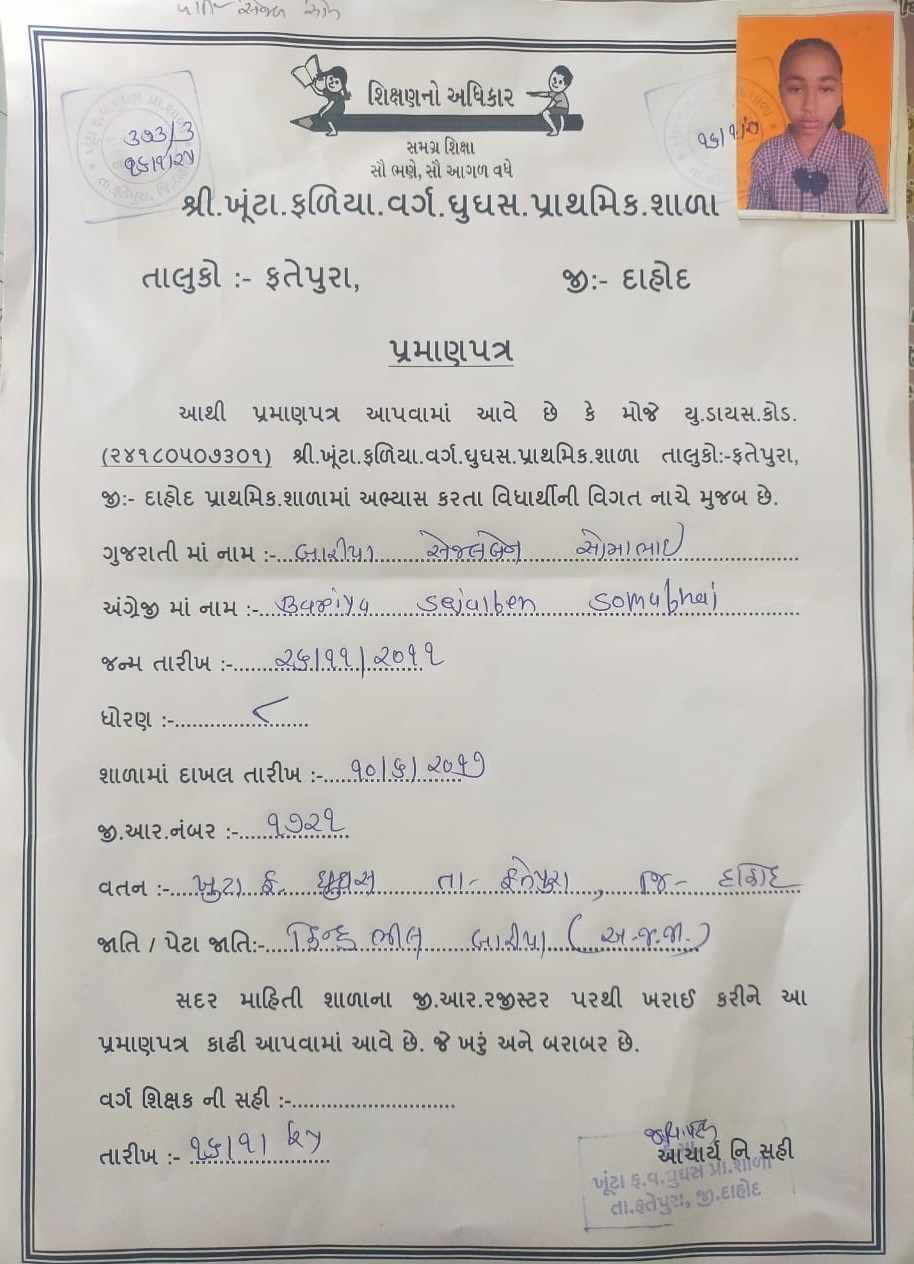 શિક્ષણનો અધિકાર
સમગ્ર શિક્ષા
સૌ ભણે, સૌ આગળ વધે
૩૭૩/૩
૧૬/૧/૨૫
૧૬/૧/૨૫
શ્રી.ખૂંટા.ફળિયા.વર્ગ.ઘુઘસ.પ્રાથમિક.શાળા
તાલુકો :- ફતેપુરા, જી:- દાહોદ
પ્રમાણપત્ર
આથી પ્રમાણપત્ર આપવામાં આવે છે કે મોજે યુ.ડાયસ.કોડ.
(૨૪૧૮૦૫૦૭૩૦૧) શ્રી.ખૂંટા.ફળિયા.વર્ગ.ઘુઘસ.પ્રાથમિક.શાળા તાલુકો:-ફતેપુરા,
જી:- દાહોદ પ્રાથમિક.શાળામાં અભ્યાસ કરતા વિધાર્થીની વિગત નાચે મુજબ છે.
ગુજરાતી માં નામ :- બારીયા સેજલબેન સોમાભાઈ
અંગ્રેજી માં નામ :- Bariya sejalben somabhai
જન્મ તારીખ :- ૨૬/૧૧/૨૦૧૧
ધોરણ :- ૮
શાળામાં દાખલ તારીખ :- ૧૦/૬/૨૦૧૭
જી.આર.નંબર :- ૧૭૨૧
વતન :- ખુટા ફ. ઘુઘસ તા- ફતેપુરા, જિ- દાહોદ
જાતિ / પેટા જાતિ:- હિન્દુ ભીલ બારીયા (અ.જ.જા.)
સદર માહિતી શાળાના જી.આર.રજીસ્ટર પરથી ખરાઈ કરીને આ
પ્રમાણપત્ર કાઢી આપવામાં આવે છે. જે ખરું અને બરાબર છે.
વર્ગ શિક્ષક ની સહી :-
તારીખ :- ૧૬/૧/૨૫
આચાર્ય નિ સહી
ખૂંટા ફ.વ.ઘુઘસ પ્રા.શાળા
તા.ફતેપુરા, જી.દાહોદ